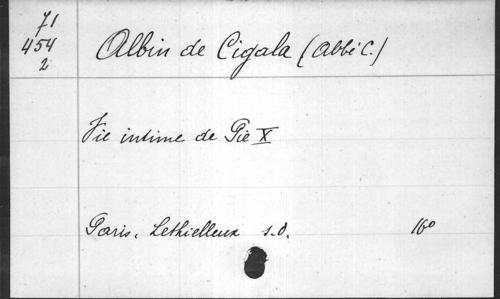 71
454
2
Albin de Cigala (Abbé C.)
Vie intime de Pie X
Paris, Lethielleux s.d. 16°